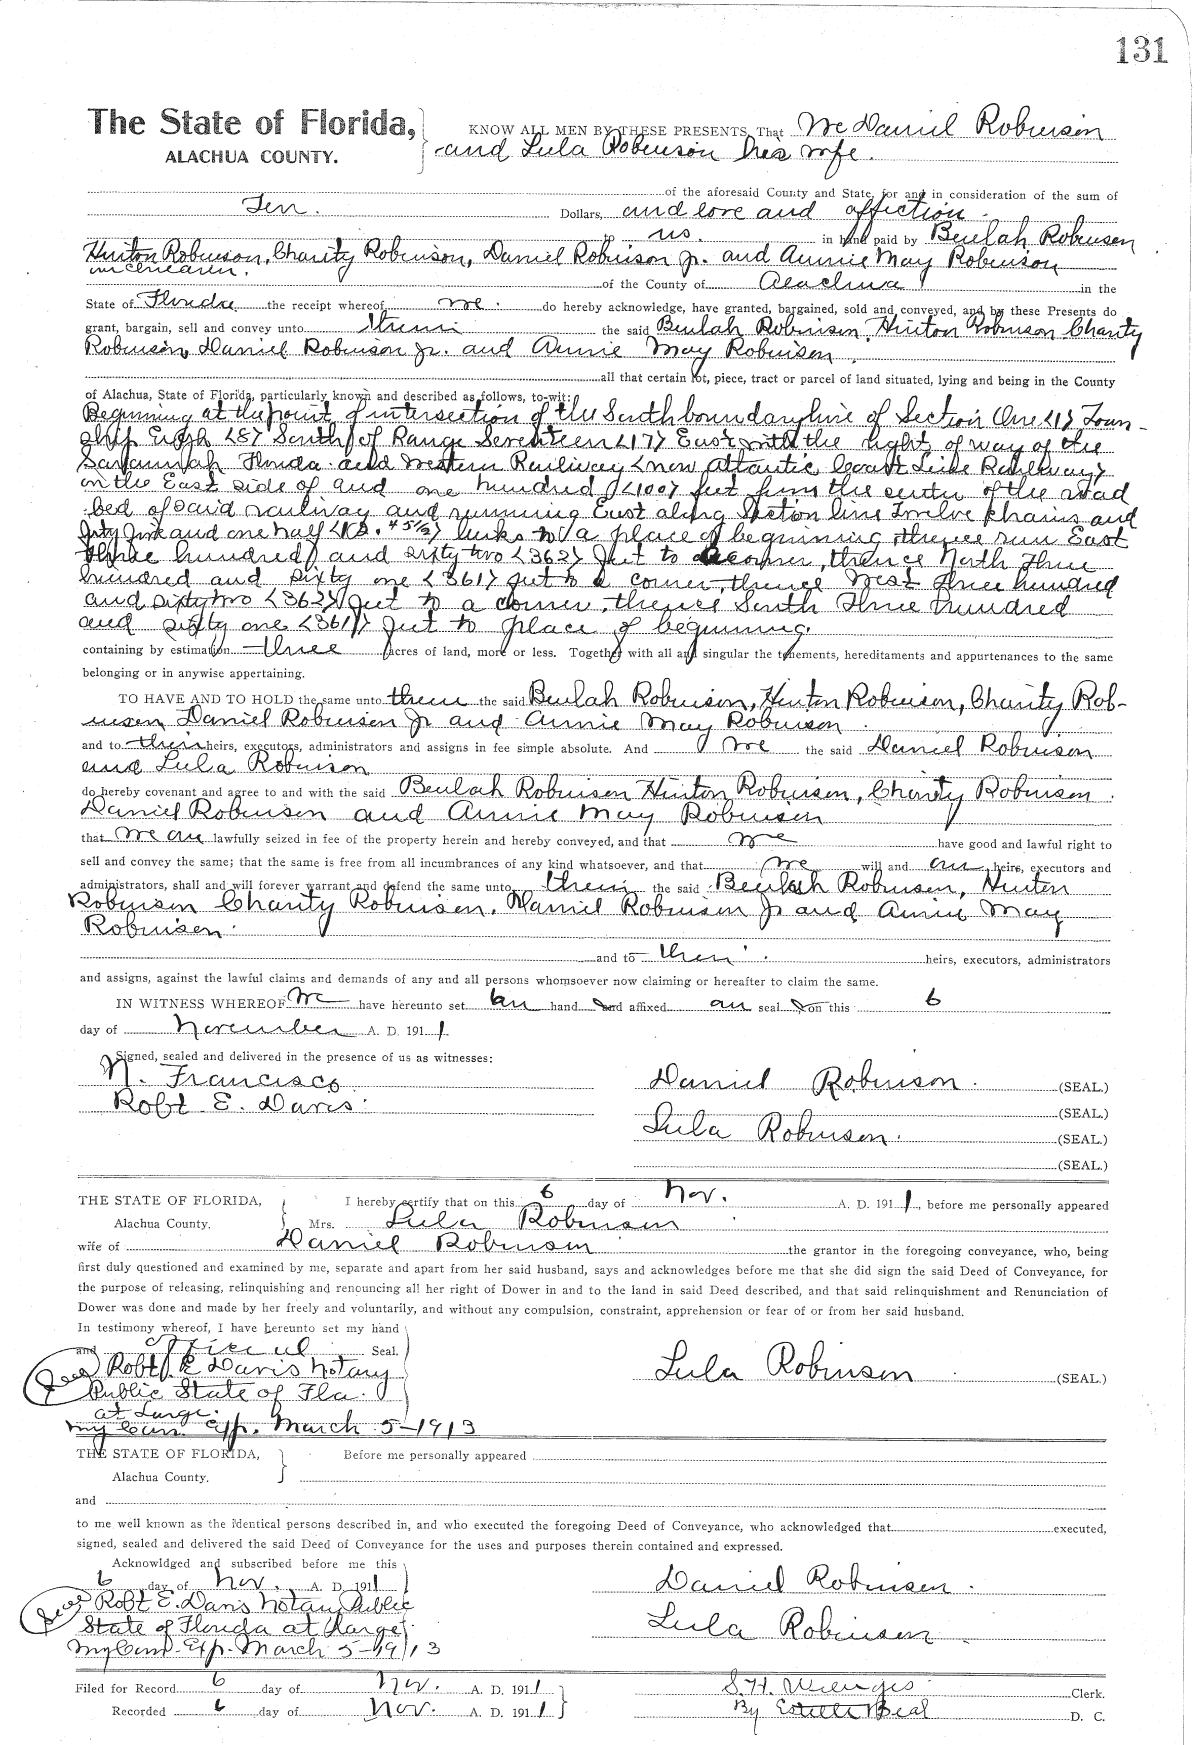 131
The State of Florida,
ALACHUA COUNTY.
KNOW ALL MEN BY THESE PRESENTS, That We Daniel Robinson
and Lula Robinson his wife.
of the aforesaid County and State, for and in consideration of the sum of
Ten. Dollars, and love and affection.
to us. in hand paid by Beulah Robinson
Hinton Robinson, Charity Robinson, Daniel Robinson Jr. and Annie May Robinson
our children.
of the County of Alachua in the
State of Florida the receipt whereof we. do hereby acknowledge, have granted, bargained, sold and conveyed, and by these Presents do
grant, bargain, sell and convey unto them the said Beulah Robinson, Hinton Robinson Charity
Robinson, Daniel Robinson Jr. and Annie May Robinson.
all that certain lot, piece, tract or parcel of land situated, lying and being in the County
of Alachua, State of Florida, particularly known and described as follows, to-wit:
Beginning at the point of intersection of the South boundary line of Section One <1> Town-
ship Eight <8> South of Range Seventeen <17> East with the right of way of the
Savannah Florida and Western Railway <now Atlantic Coast Line Railway>
on the East side of and one hundred <100> feet from the center of the road
bed of said railway and running East along Section line Twelve chains and
forty five and one half <12. 45 1/2> links to a place of beginning, thence run East
three hundred and sixty two <362> feet to a corner, thence North Three
hundred and sixty one <361> feet to a corner, thence West three hundred
and sixty two <362> feet to a corner, thence South Three hundred
and sixty one <361> feet to place of beginning.
containing by estimation three acres of land, more or less. Together with all and singular the tenements, hereditaments and appurtenances to the same
belonging or in anywise appertaining.
TO HAVE AND TO HOLD the same unto them the said Beulah Robinson, Hinton Robinson, Charity Rob-
inson Daniel Robinson Jr and Annie May Robinson
and to their heirs, executors, administrators and assigns in fee simple absolute. And we the said Daniel Robinson
and Lula Robinson
do hereby covenant and agree to and with the said Beulah Robinson Hinton Robinson, Charity Robinson.
Daniel Robinson and Annie May Robinson
that we are lawfully seized in fee of the property herein and hereby conveyed, and that we have good and lawful right to
sell and convey the same; that the same is free from all incumbrances of any kind whatsoever, and that we will and our heirs, executors and
administrators, shall and will forever warrant and defend the same unto them the said Beulah Robinson, Hinton
Robinson Charity Robinson, Daniel Robinson Jr and Annie May
Robinson.
and to their heirs, executors, administrators
and assigns, against the lawful claims and demands of any and all persons whomsoever now claiming or hereafter to claim the same.
IN WITNESS WHEREOF we have hereunto set our hand s and affixed our seal s on this 6
day of November A. D. 1911.
Signed, sealed and delivered in the presence of us as witnesses:
N. Francisco
Robt E. Davis.
Daniel Robinson. (SEAL.)
(SEAL.)
Lula Robinson. (SEAL.)
(SEAL.)
THE STATE OF FLORIDA,
Alachua County.
I hereby certify that on this 6 day of Nov. A. D. 1911, before me personally appeared
Mrs. Lula Robinson
wife of Daniel Robinson the grantor in the foregoing conveyance, who, being
first duly questioned and examined by me, separate and apart from her said husband, says and acknowledges before me that she did sign the said Deed of Conveyance, for
the purpose of releasing, relinquishing and renouncing all her right of Dower in and to the land in said Deed described, and that said relinquishment and Renunciation of
Dower was done and made by her freely and voluntarily, and without any compulsion, constraint, apprehension or fear of or from her said husband.
In testimony whereof, I have hereunto set my hand
and official Seal.
Seal Robt E Davis Notary
Public State of Fla.
at Large.
My Com. Exp. March 5-1913
Lula Robinson (SEAL.)
THE STATE OF FLORIDA,
Alachua County.
Before me personally appeared
and
to me well known as the identical persons described in, and who executed the foregoing Deed of Conveyance, who acknowledged that executed,
signed, sealed and delivered the said Deed of Conveyance for the uses and purposes therein contained and expressed.
Acknowldged and subscribed before me this
6 day of Nov. A. D. 1911
Seal Robt E. Davis Notary Public
State of Florida at Large
My Com. Exp. March 5-1913
Daniel Robinson.
Lula Robinson
Filed for Record 6 day of Nov. A. D. 1911
Recorded 6 day of Nov. A. D. 1911
S. H. Wienges Clerk.
By Estelle Beal D. C.